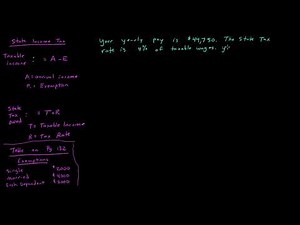 State Income Tax
Taxable
Income : = A - E
A = annual income
E = Exemption
State
Tax
owed : = T × R
T = Taxable Income
R = Tax Rate
Table on Pg 132
Exemptions
Single $2000
Married $4000
Each Dependent
Your yearly pay is $44,750. The State Tax
rate is 4% of taxable wages.